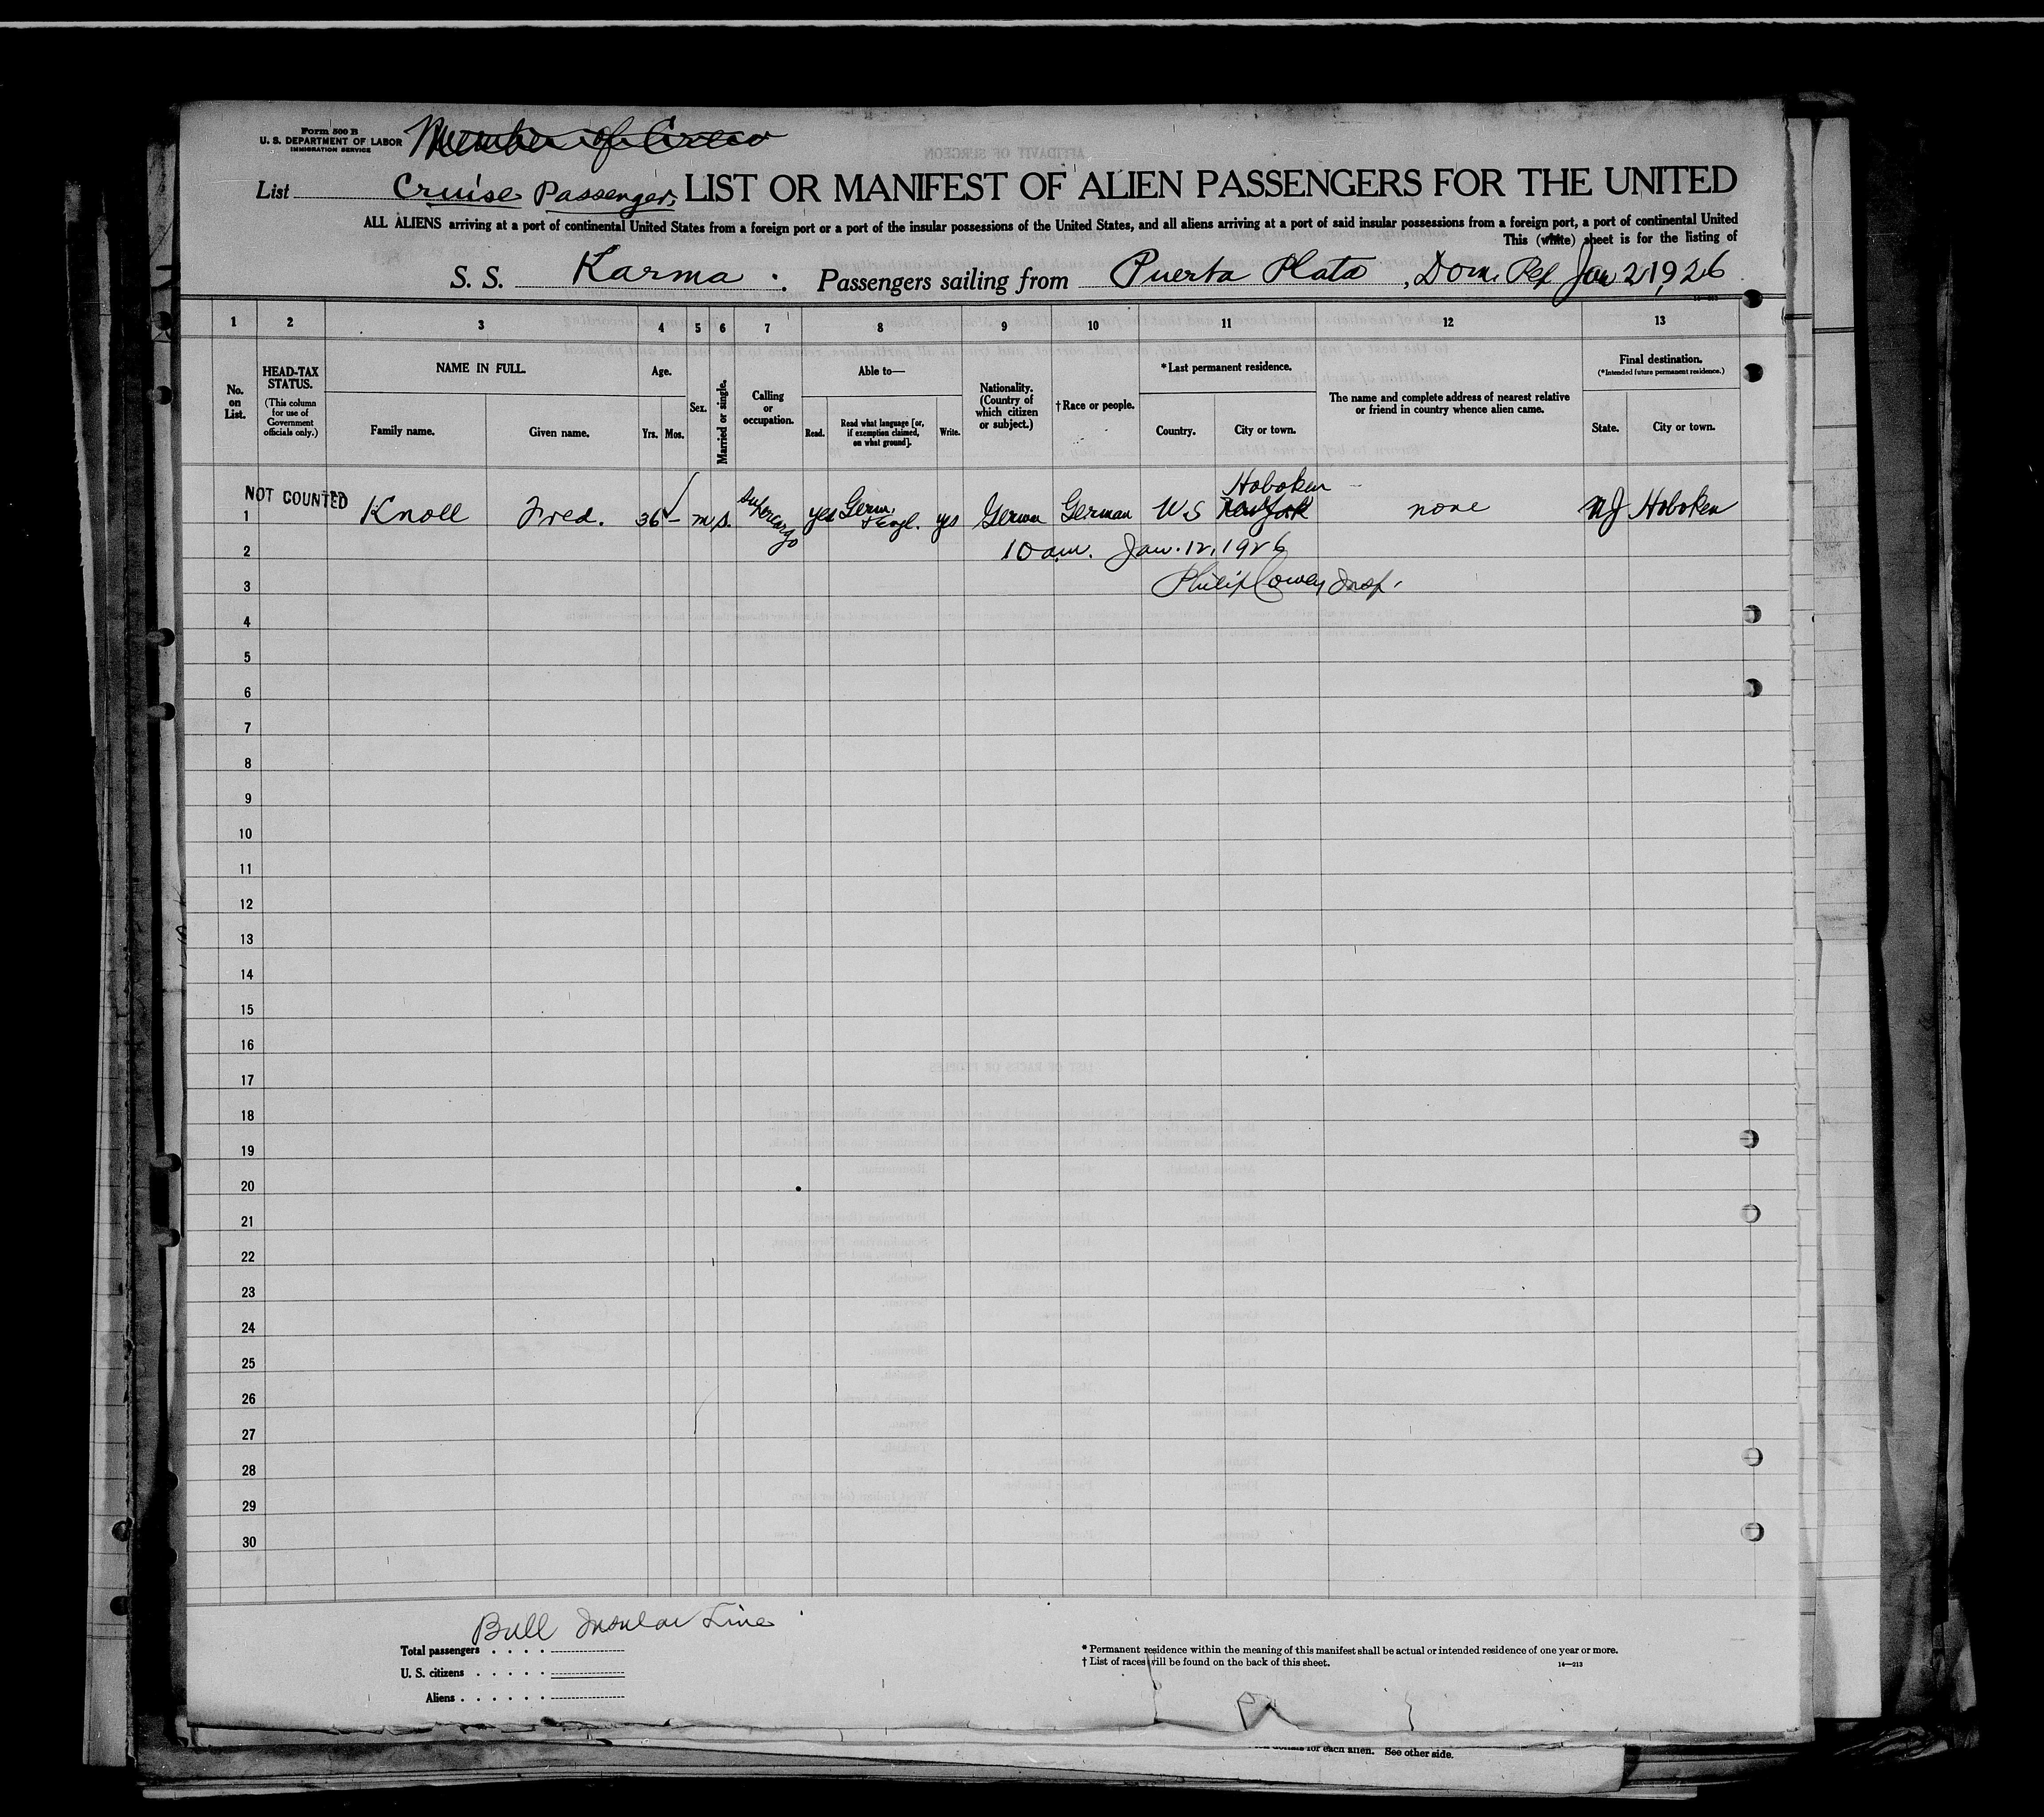 Form 500 B
U. S. DEPARTMENT OF LABOR
IMMIGRATION SERVICE
Member of Crew
List Cruise Passenger, LIST OR MANIFEST OF ALIEN PASSENGERS FOR THE UNITED
ALL ALIENS arriving at a port of continental United States from a foreign port or a port of the insular possessions of the United States, and all aliens arriving at a port of said insular possessions from a foreign port, a port of continental United
This (white) sheet is for the listing of
S. S. Karma . Passengers sailing from Puerta Plata, Dom. Rep Jan 2, 1926
1 2 3 4 5 6 7 8 9 10 11 12 13
No. on List.
HEAD-TAX STATUS.
(This column for use of Government officials only.)
NAME IN FULL.
Family name.
Given name.
Age.
Yrs. Mos.
Sex.
Married or single.
Calling or occupation.
Able to—
Read.
Read what language [or, if exemption claimed, on what ground].
Write.
Nationality. (Country of which citizen or subject.)
† Race or people.
*Last permanent residence.
Country.
City or town.
The name and complete address of nearest relative or friend in country whence alien came.
Final destination.
(*Intended future permanent residence.)
State.
City or town.
Hoboken
NOT COUNTED
1 Knoll Fred. 36 - m s. supercargo yes Germ. & Engl. yes German German US New York none NJ Hoboken
2 10 am. Jan. 12, 1926
3 Philip Cowen Insp.
4
5
6
7
8
9
10
11
12
13
14
15
16
17
18
19
20
21
22
23
24
25
26
27
28
29
30
Bull Insular Line
Total passengers
U. S. citizens
Aliens
* Permanent residence within the meaning of this manifest shall be actual or intended residence of one year or more.
† List of races will be found on the back of this sheet.
14—213
for each alien. See other side.